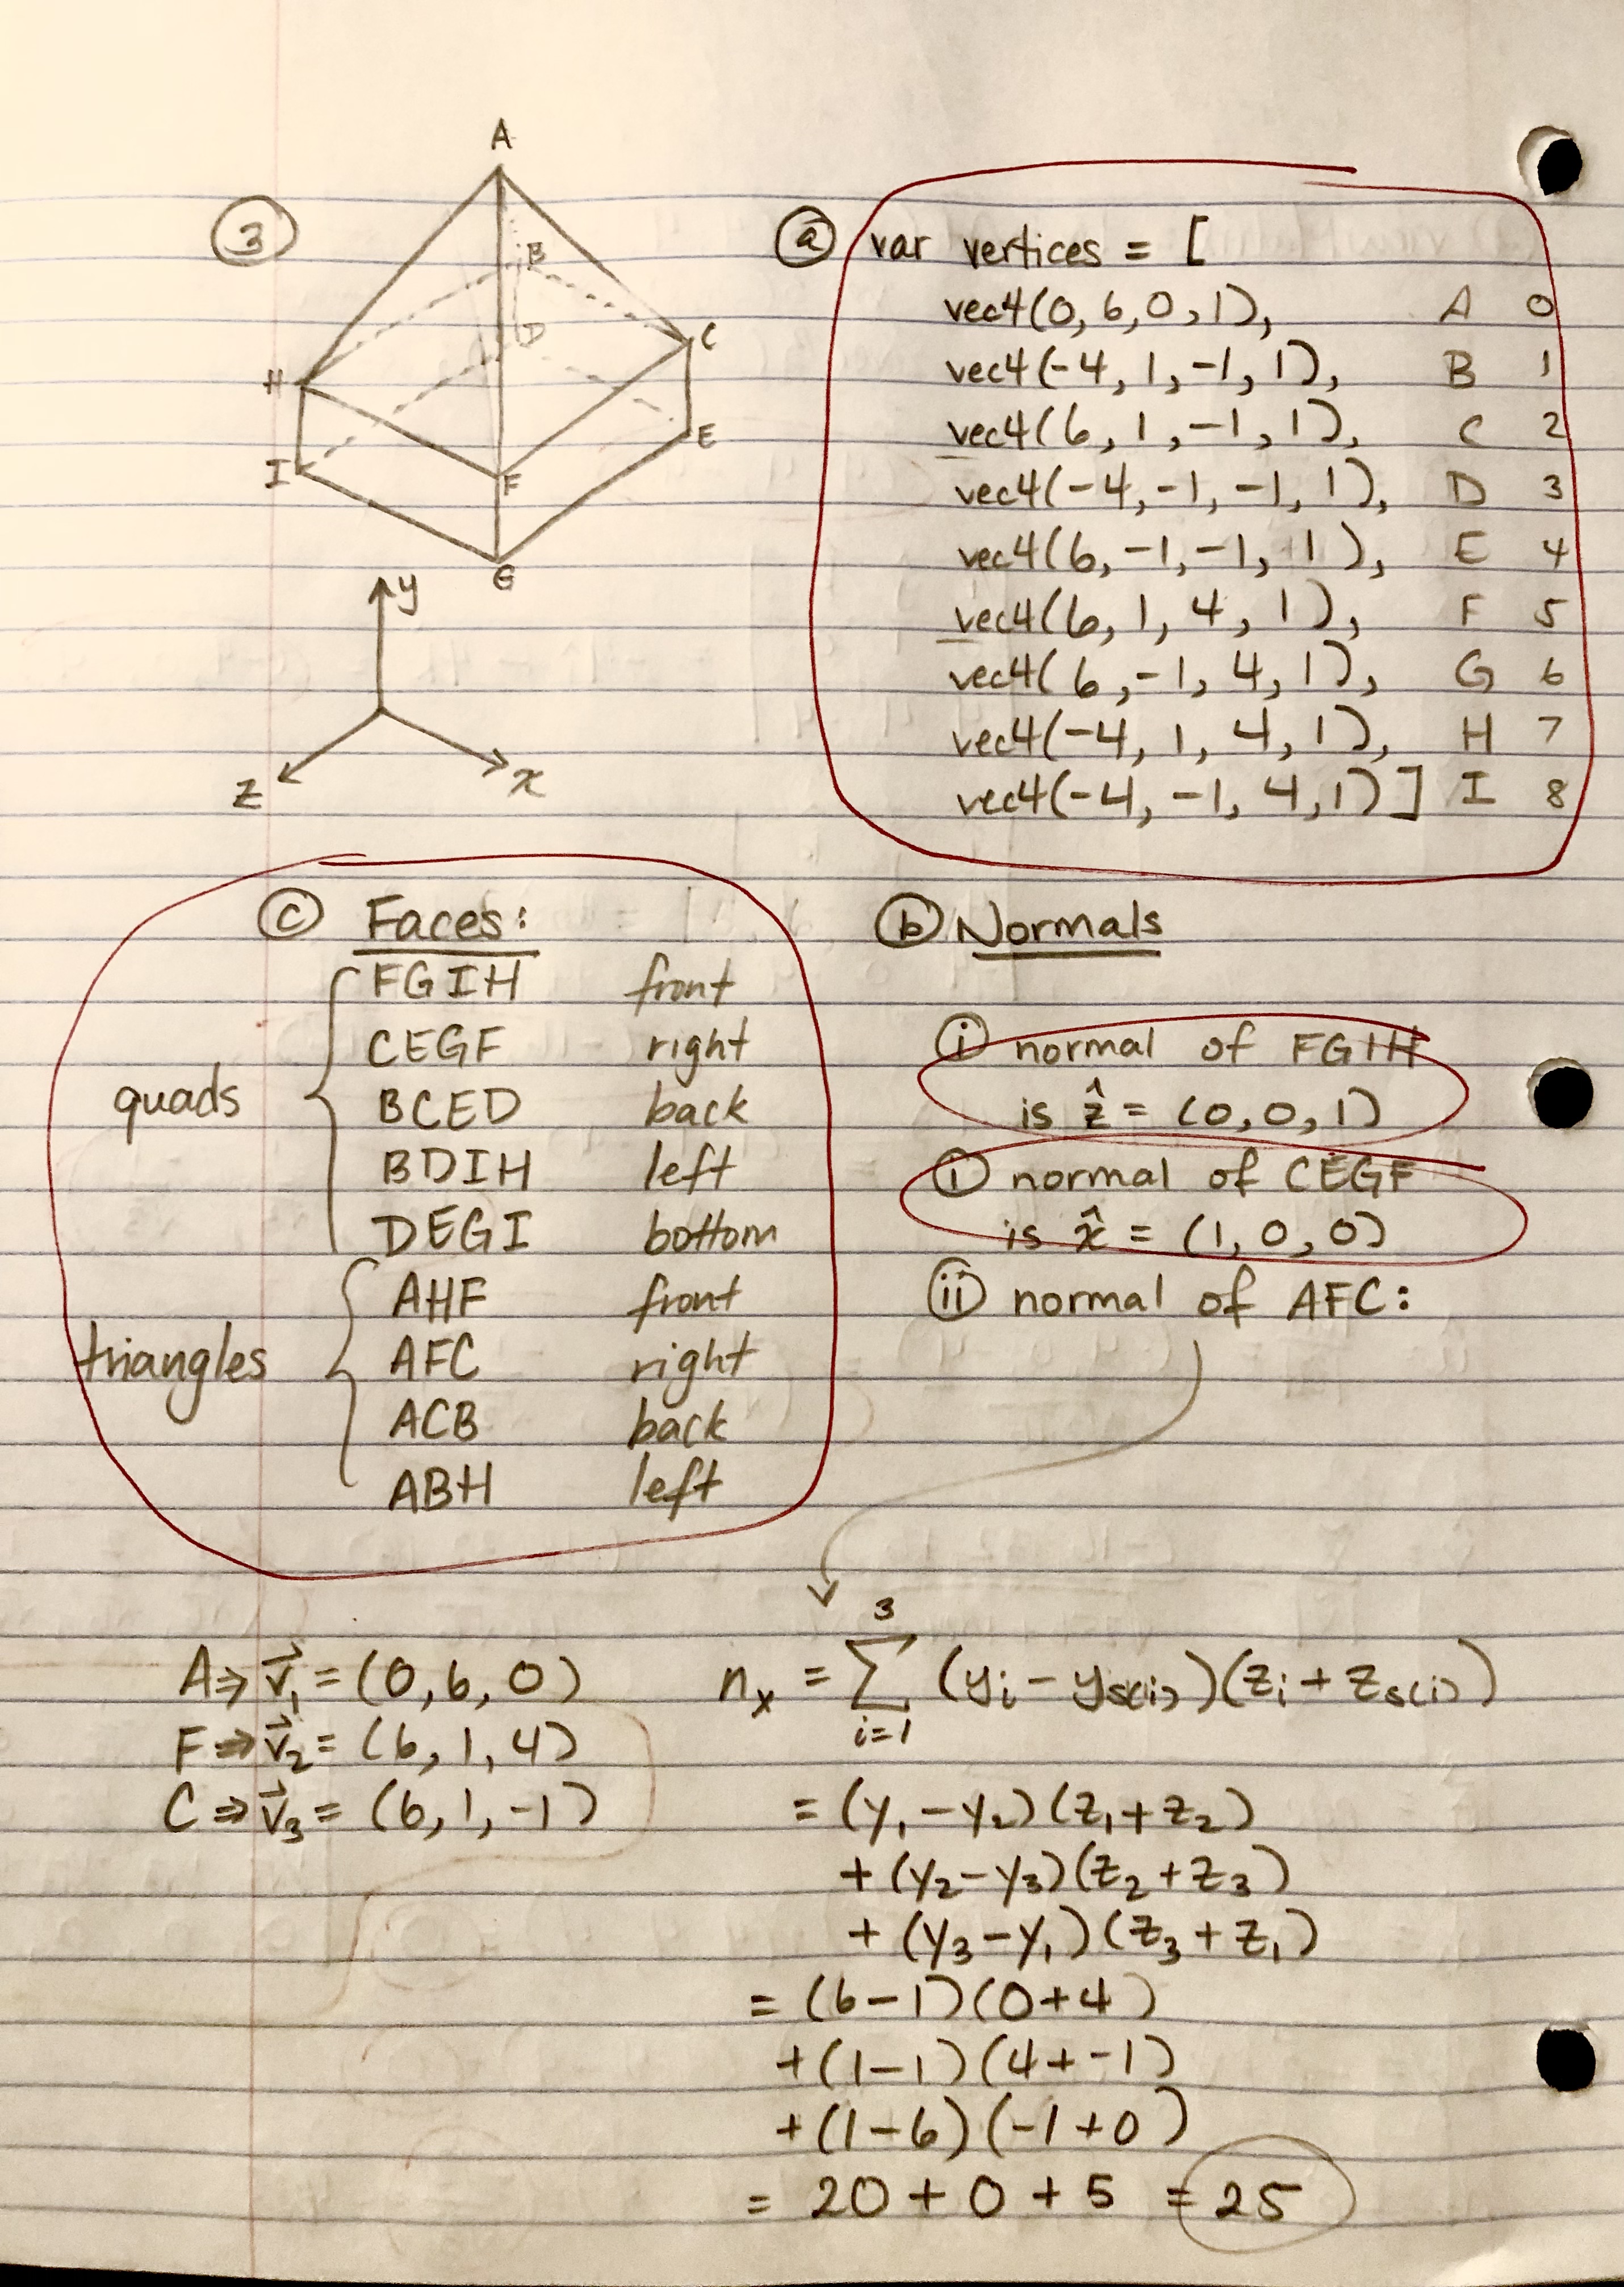 ③
A
B
D
C
H
E
I
F
G
y
z
x
ⓐ var vertices = [
vec4(0, 6, 0, 1), A 0
vec4(-4, 1, -1, 1), B 1
vec4(6, 1, -1, 1), C 2
vec4(-4, -1, -1, 1), D 3
vec4(6, -1, -1, 1), E 4
vec4(6, 1, 4, 1), F 5
vec4(6, -1, 4, 1), G 6
vec4(-4, 1, 4, 1), H 7
vec4(-4, -1, 4, 1)] I 8
ⓒ Faces:
quads
FGIH front
CEGF right
BCED back
BDIH left
DEGI bottom
triangles
AHF front
AFC right
ACB back
ABH left
ⓑ Normals
ⓘ normal of FGIH
is ẑ = (0, 0, 1)
ⓘ normal of CEGF
is x̂ = (1, 0, 0)
(ii) normal of AFC:
A ⇒ v⃗₁ = (0, 6, 0)
F ⇒ v⃗₂ = (6, 1, 4)
C ⇒ v⃗₃ = (6, 1, -1)
nₓ = ∑_{i=1}^{3} (y_i - y_{s(i)})(z_i + z_{s(i)})
= (y₁ - y₂)(z₁ + z₂)
+ (y₂ - y₃)(z₂ + z₃)
+ (y₃ - y₁)(z₃ + z₁)
= (6-1)(0+4)
+(1-1)(4+-1)
+(1-6)(-1+0)
= 20 + 0 + 5 = 25